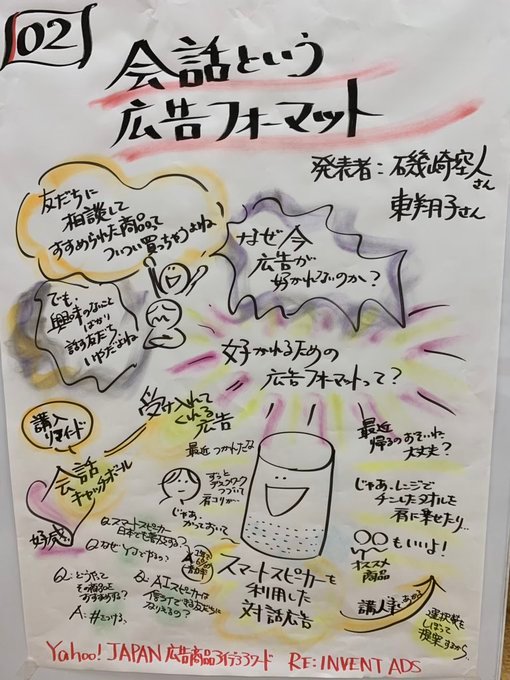 02
会話という
広告フォーマット
発表者：磯崎空人さん
東翔子さん
友だちに
相談して
すすめられた商品って
ついつい買っちゃうよね
なぜ今
広告が
好かれないのか？
でも、
興味のないこと
ばかり
話す友だち、
いやだよね
好かれるための
広告フォーマットって？
受け入れて
くれる広告
購入
リマインド
会話
キャッチボール
好感
最近つかれたな
ずっと
デスクワーク
つづいて
肩コリが…
じゃあ、
かっておいて
最近
帰るのおそいね
大丈夫？
じゃあ、レンジで
チンしたタオルを
肩に乗せたり…
〇〇もいいよ！
オススメ
商品
Q.スマートスピーカー
日本でも普及する？
Q.なぜYJでやるの？
Q：どうたって
Q：AIスピーカは
なりえるの？
A：#をつける。
スマートスピーカーを
利用した
対話広告
選択肢を
しぼって
提案するから
Yahoo! JAPAN 広告商品アイデアアワード RE:INVENT ADS